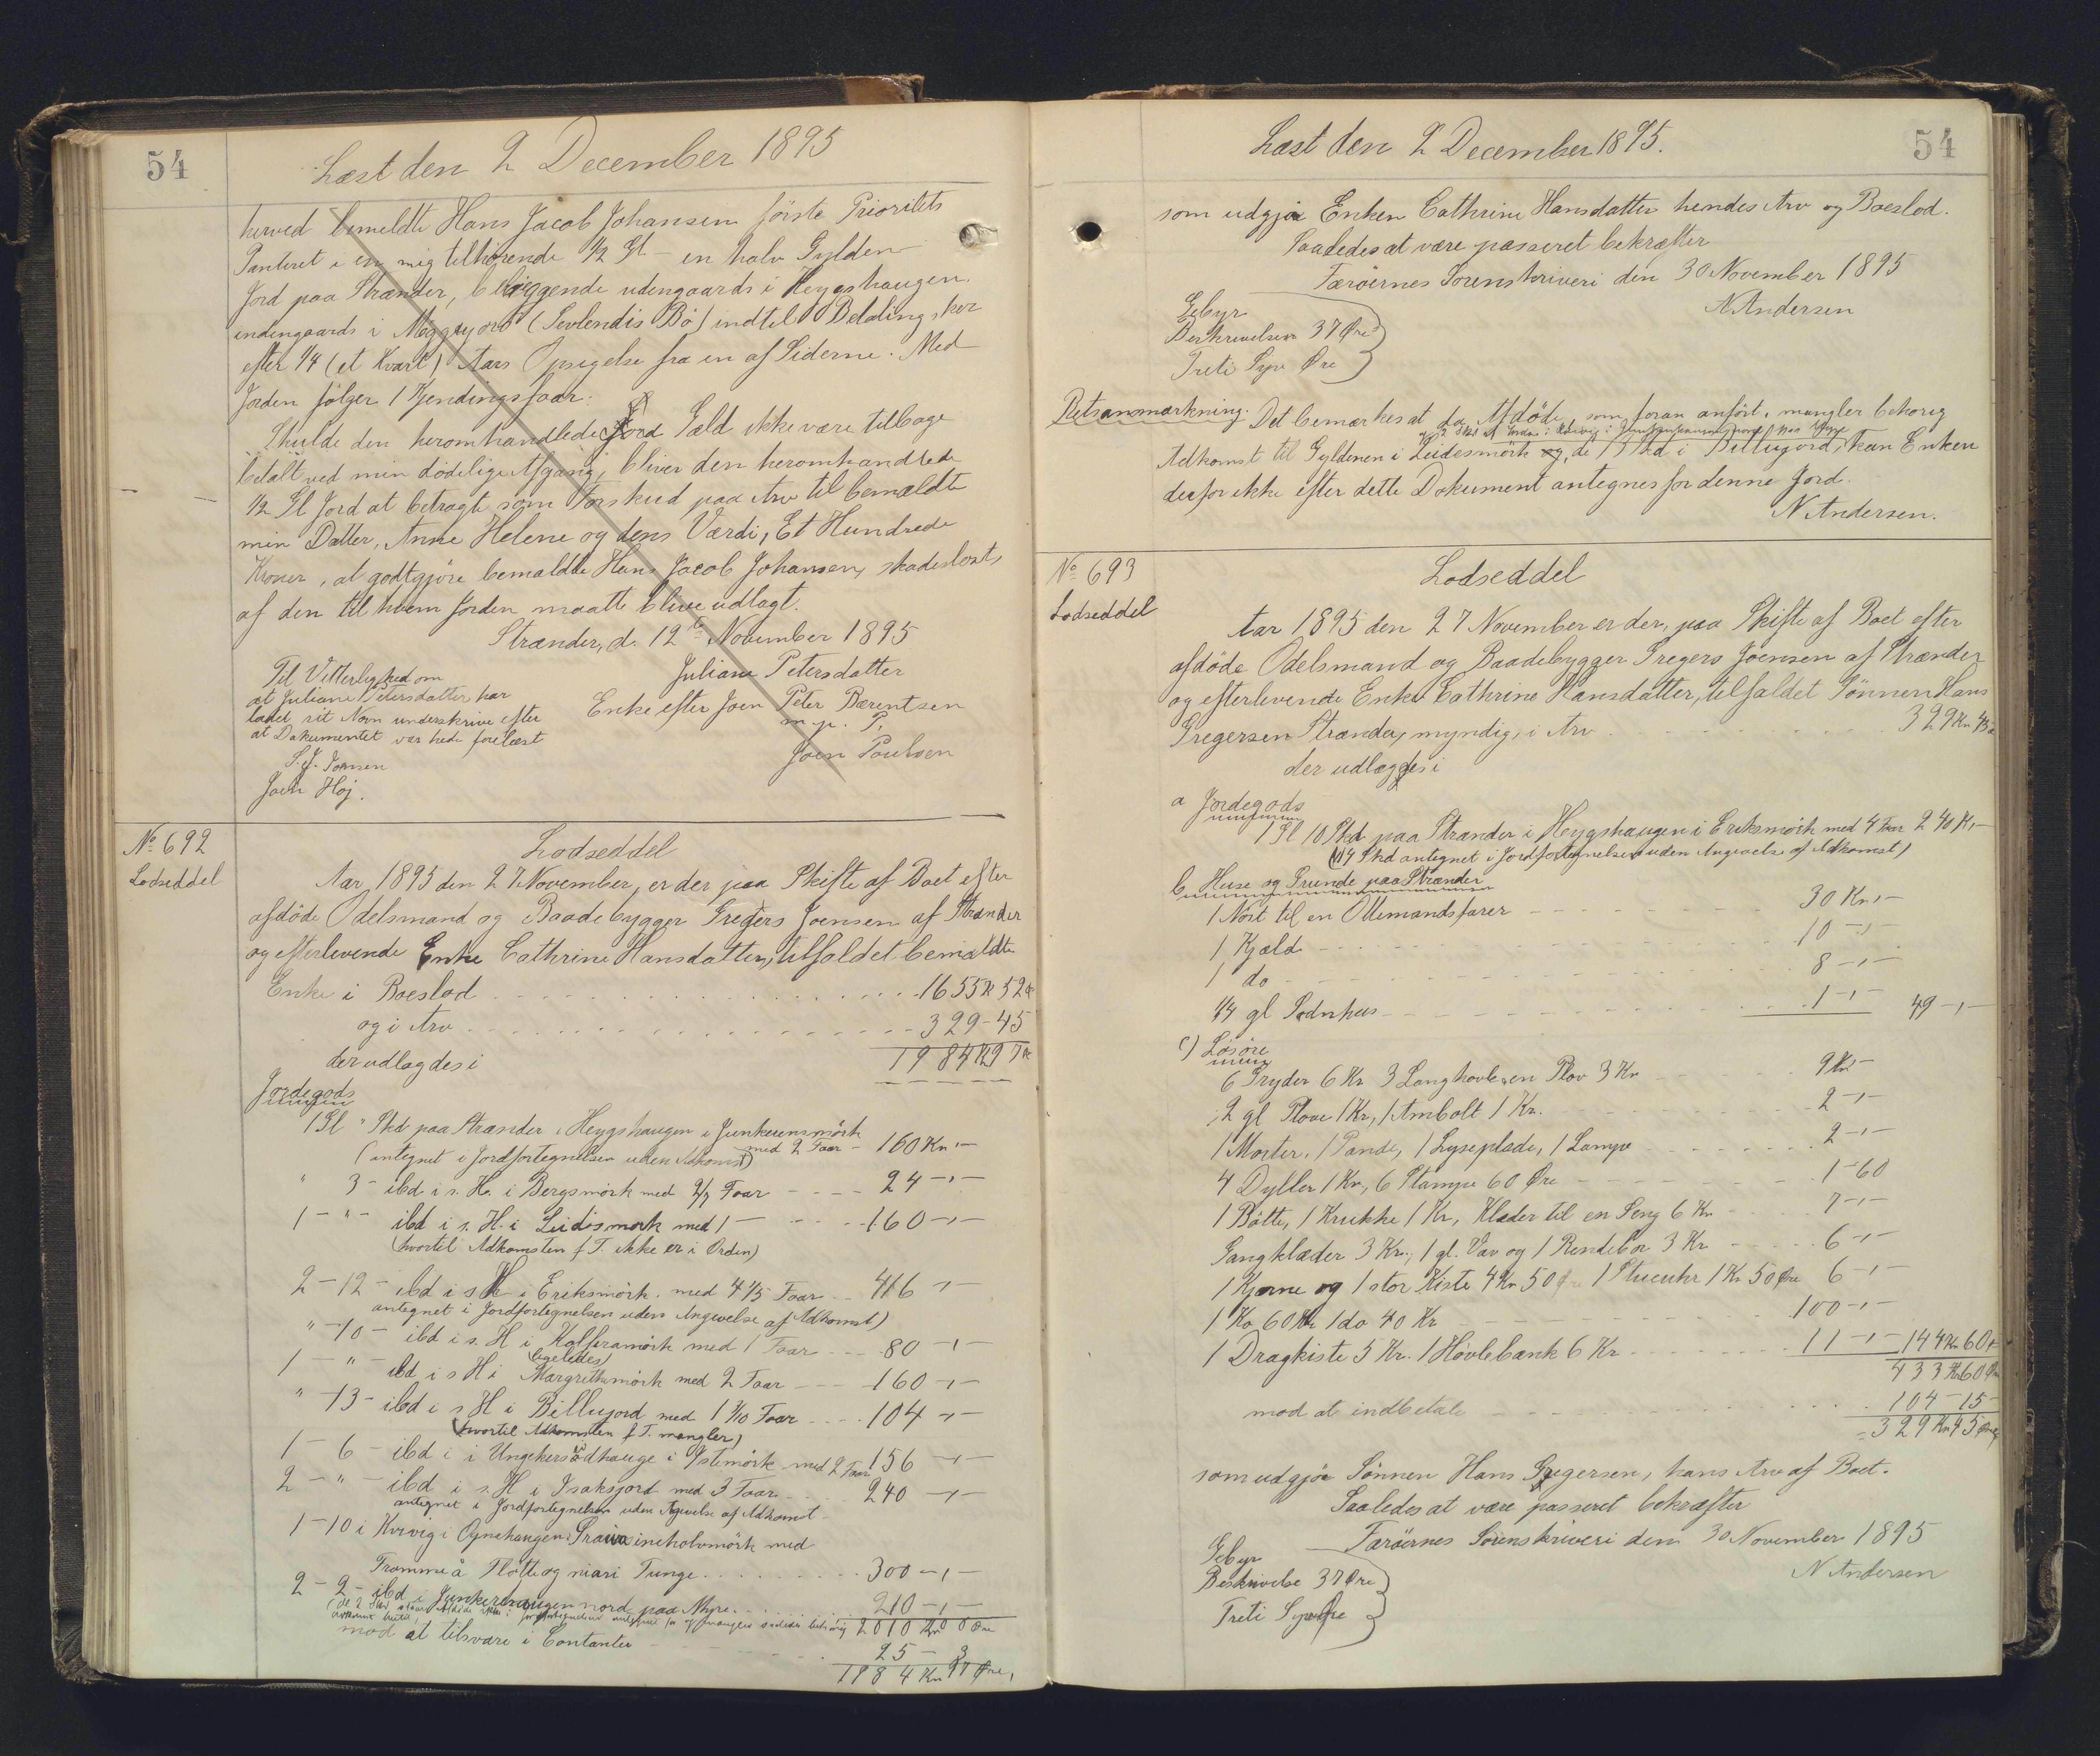 54
Læst den 2 December 1895
herved bemeldte Hans Jacob Johansen förste Prioritets
Panteret i en mig tilhörende 1/2 Gl - en halv Gylden
Jord paa Strænder, beliggende udengaards i Heygshaugen
indengaards i (Bö) indtil Betaling sker
efter 1/4 (et Kvart) Aars Opsigelse fra en af Siderne. Med
Jorden fölger 1 Kjendingsfaar.
Skulde den heromhandlede Gæld ikke være tilbage
betalt ved min dödelige Afgang, bliver den heromhandlede
1/2 Gl Jord at betragte som Forskud paa Arv til bemældte
min Datter, Anne Helene og dens Værdi, Et Hundrede
Kroner, at godtgjöre bemældte Hans Jacob Johansen, skadeslöst
af den til hvem Jorden maatte blive udlagt.
Strænder, d. 12te November 1895
Til Vitterlighed om
at Juliane Petersdatter har
ladet sit Navn underskrive efter
at Dokumentet var hede forelæst
S. J. Joensen
Joen Höj.
Juliane Petersdatter
Enke efter Joen Peter Bærentsen
m. p. P.
Joen Poulsen
No 692
Lodseddel
Lodseddel
Aar 1895 den 27 November, er der paa Skifte af Boet efter
afdöde Odelsmand og Baadebygger Gregers Joensen af Strænder
og efterlevende Enke Cathrine Hansdatter, tilfaldet bemældte
Enke i Boeslod 1655 Kr 52 Ø
og i Arv 329-45
der udlagdes i 1984 Kr 97 Ø
Jordegods
1 Gl " Skd paa Strænder i Heygshaugen i Junkerensmörk
med 2 Faar - 160 Kr "-
(antegnet i Jordfortegnelsen uden Adkomst)
" 3 - ibd i s. H. i Bergsmörk med 2/7 Faar 24 -"-
1 - " - ibd i s. H. i Leidismörk med 1 - 160 -"-
(hvortil Adkomsten f. T. ikke er i Orden)
2 - 12 - ibd i s H i Eriksmörk med 4 1/5 Faar 416 -"-
antegnet i Jordfortegnelsen uden Angivelse af Adkomst)
" - 10 - ibd i s. H i Kalferamörk med 1 Faar 80 -"-
(ligeledes)
1 - " - ibd i s H i Margrethumörk med 2 Faar 160 -"-
" - 13 - ibd i s H i Billujord med 1 3/10 Faar 104 -"-
(hvortil Adkomsten f. T. mangler)
1 - 6 - ibd i i Ungekersodhauge i Ystemörk med 2 Faar 156 -"-
2 - " - ibd i s. H i Isaksjord med 3 Faar 240 -"-
antegnet i Jordfortegnelsen uden Angivelse af Adkomst
1 - 10 i Kvivig i Ognahaugen i med
Trommeå Flötte og niari Tunge 300 -"-
2 - 2 - ibd i Junkerhaugen nord paa Myre 210 -"-
2010 Kr 00 Øre
mod at tilsvare i Contanter 25 - 3
1984 Kr 97 Øre,
Læst den 2 December 1895.
54
som udgjör Enken Cathrine Hansdatter hendes Arv og Boeslod.
Saaledes at være passeret bekræfter
Færöernes Sorenskriveri den 30 November 1895
N Andersen
Gebyr
Beskrivelsen 37 Øre
Treti Syv Øre
Retsanmærkning. Det bemærkes at da Afdöde, som foran anfört, mangler behörig
Adkomst til Gyldenen i Leidesmörk og, de 13 Skd i Billujord, kan Enken
derfor ikke efter dette Dokument antegnes for denne Jord.
N Andersen.
No 693
Lodseddel
Lodseddel
Aar 1895 den 27 November er der, paa Skifte af Boet efter
afdöde Odelsmand og Baadebygger Gregers Joensen af Strænder
og efterlevende Enke Cathrine Hansdatter, tilfaldet Sönnen Hans
Gregersen Strænder, myndig, i Arv 329 Kr 45 Ø
der udlægges i
a Jordegods
1 Gl 10 Skd paa Strænder i Heygshaugen i Eriksmörk med 4 Faar 240 Kr -
(14 Skd antegnet i Jordfortegnelsen uden Angivelse af Adkomst)
b Huse og Grunde paa Strænder
1 Nöst til en Ottemandsfarer 30 Kr "-
1 Kjeld 10 -"-
1 do 8 -"-
1/4 gl Sodnhus 1 -"- 49 -"-
c) Lösöre
6 Gryder 6 Kr 3 Langhövle, en Plov 3 Kr 9 Kr -
2 gl Plove 1 Kr, 1 Ambolt 1 Kr. 2 -"-
1 Morter, 1 Pande, 1 Lyseplade, 1 Lampe 2 -"-
4 Dyller 1 Kr, 6 Stampe 60 Øre 1-60
1 Bötte, 1 Krukke 1 Kr, Klæder til en Seng 6 Kr 7 -"-
Gangklæder 3 Kr, 1 gl. Væv og 1 Rendebor 3 Kr 6 -"-
1 Kjerne og 1 stor Kiste 4 Kr 50 Øre 1 Stueuhr 1 Kr 50 Øre 6 -"-
1 Ko 60 Kr 1 do 40 Kr 100 -"-
1 Dragkiste 5 Kr. 1 Hövlebænk 6 Kr 11 -"- 144 Kr 60 Ø
433 Kr 60 Øre
mod at indbetale 104 - 15 -
329 Kr 45 Øre
som udgjör Sönnen Hans Gregersen, hans Arv af Boet.
Saaledes at være passeret bekræfter
Færöernes Sorenskriveri den 30 November 1895
N Andersen
Gebyr
Beskrivelse 37 Øre
Treti Syv Øre